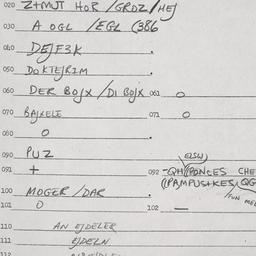 020 Z+MUT HOR /GROZ/HEJ
030 A OGL /EGL (386
040 DEJF3K
050 DOKTEJRIM
060 DER BOJX /DI BOJX 061 O
070 BAJXELE 071 O
080 O
090 PUZ
091 + 092 -QH((PONCES CHE
((PAMPUS+KES/ QG
100 MOGER /DAR
101 O 102 —
110 AN EJDELER
111 EJDELN
112